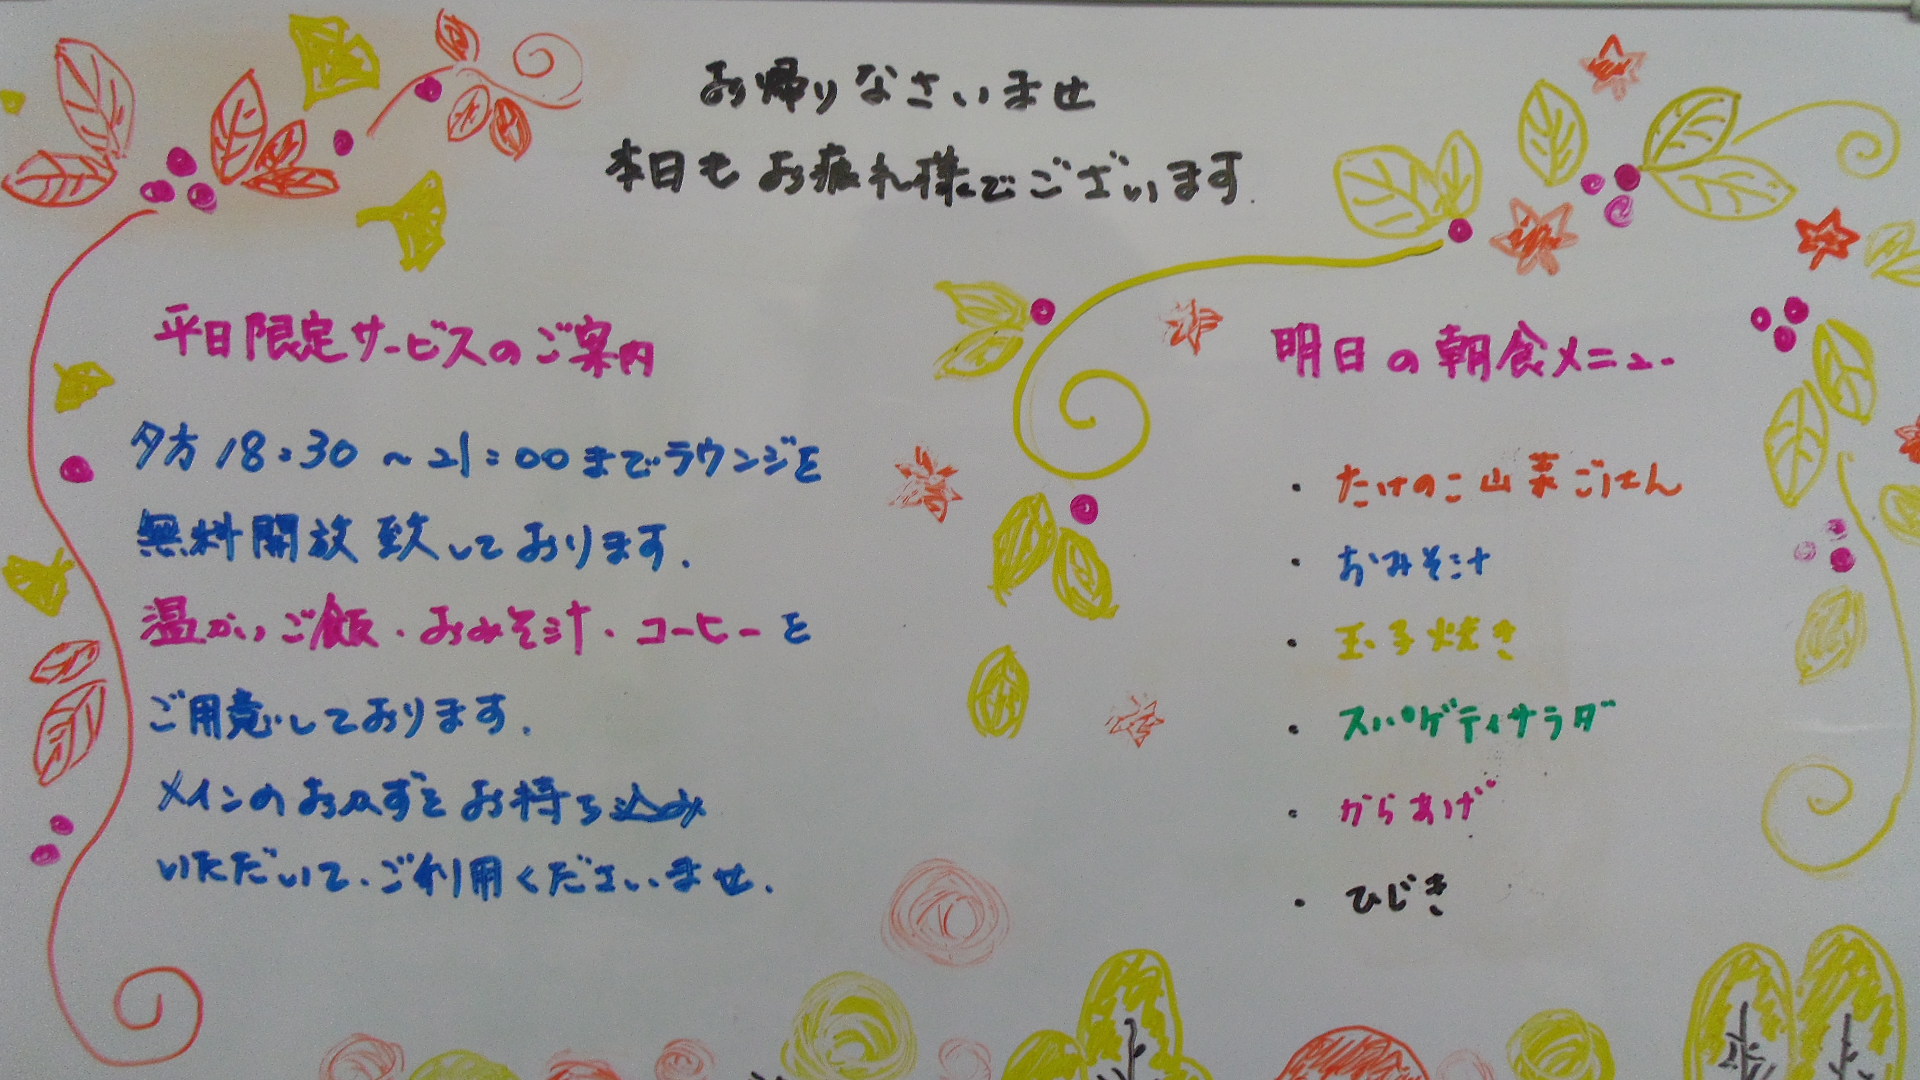 お帰りなさいませ
本日もお疲れ様でございます.
平日限定サービスのご案内
夕方18:30～21:00までラウンジを
無料開放致しております.
温かいご飯・おみそ汁・コーヒーを
ご用意しております.
メインのおかずをお持ち込み
いただいて、ご利用くださいませ.
明日の朝食メニュー
・たけのこ山菜ごはん
・おみそ汁
・玉子焼き
・スパゲティサラダ
・からあげ
・ひじき